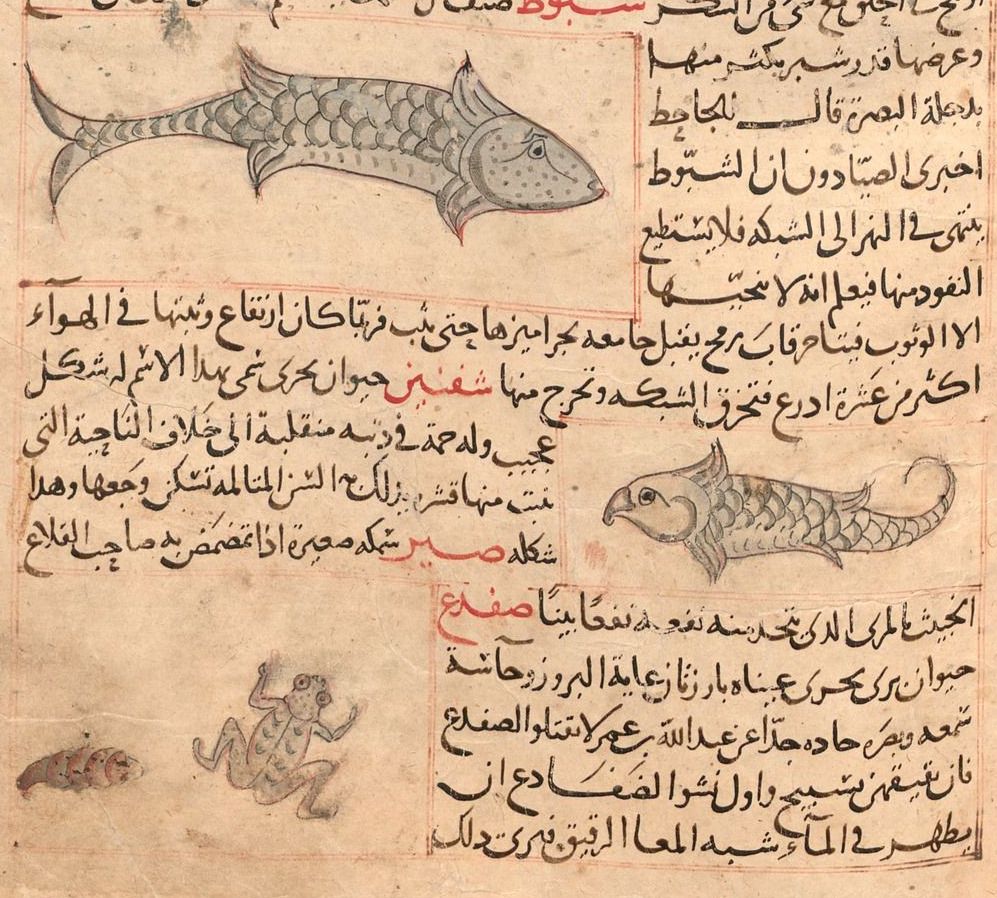 شبوط صنف
وعرضها قدر شبر يكثر منها
بدجلة البصرة قال الجاحط
اخبرى الصيادون ان الشبوط
ينتهى فى النهر الى الشبكه فلا يستطيع
النفود منها فيعلم انه لا ينجيها
الا الوثوب فيتاخر قاب رمح يقبل جامعه بحراميزها حتى يثب فربما كان ارتفاع وثبتها فى الهوآء
اكثر من عشرة ادرع فتخرق الشبكه وتخرج منها شفنين حيوان بحرى سمى بهدا الاسم له شكل
عجيب وله حمة فى دنبه منقلبة الى خلاف الناحية التى
ينبت منها قشره بدلك السن المتالمه تسكن وجعها وهدا
شكله صير سمكه صغيرة اذا تمضمض به صاحب القلاع
الخبيث بالمرى الدى يتخد منه نفعه نفعًا بينًا ضفدع
حيوان برى بحرى عيناه بارزتان غاية البروز وحآسة
سمعه وبصره حاده جدّا عن عبد الله بن عمر لا تقتلوا الصفدع
فان نقيقهن تسبيح واول نشوا الضفادع ان
يطهر فى المآء شبه المعا الرقيق فيرى دلك